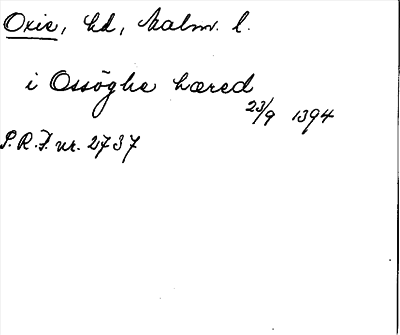 Oxie, hd, Malm. l.
i Ossöghe hæred
23/9 1394
S.R.P. nr. 2737